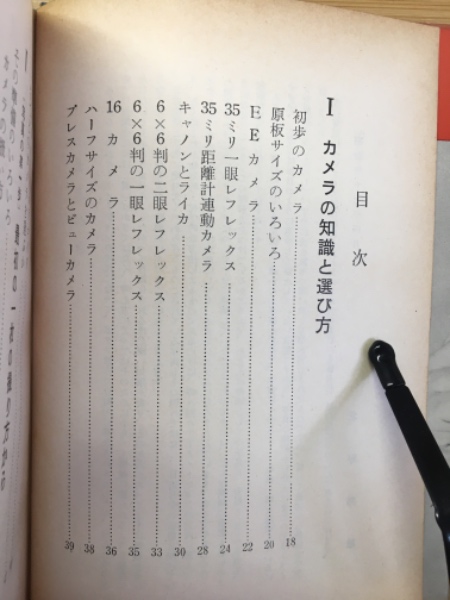 目次
I カメラの知識と選び方
初歩のカメラ……18
原板サイズのいろいろ……20
EEカメラ……22
35ミリ一眼レフレックス……24
35ミリ距離計連動カメラ……28
キャノンとライカ……30
6×6判の二眼レフレックス……33
6×6判の一眼レフレックス……35
16カメラ……36
ハーフサイズのカメラ……38
プレスカメラとビューカメラ……39